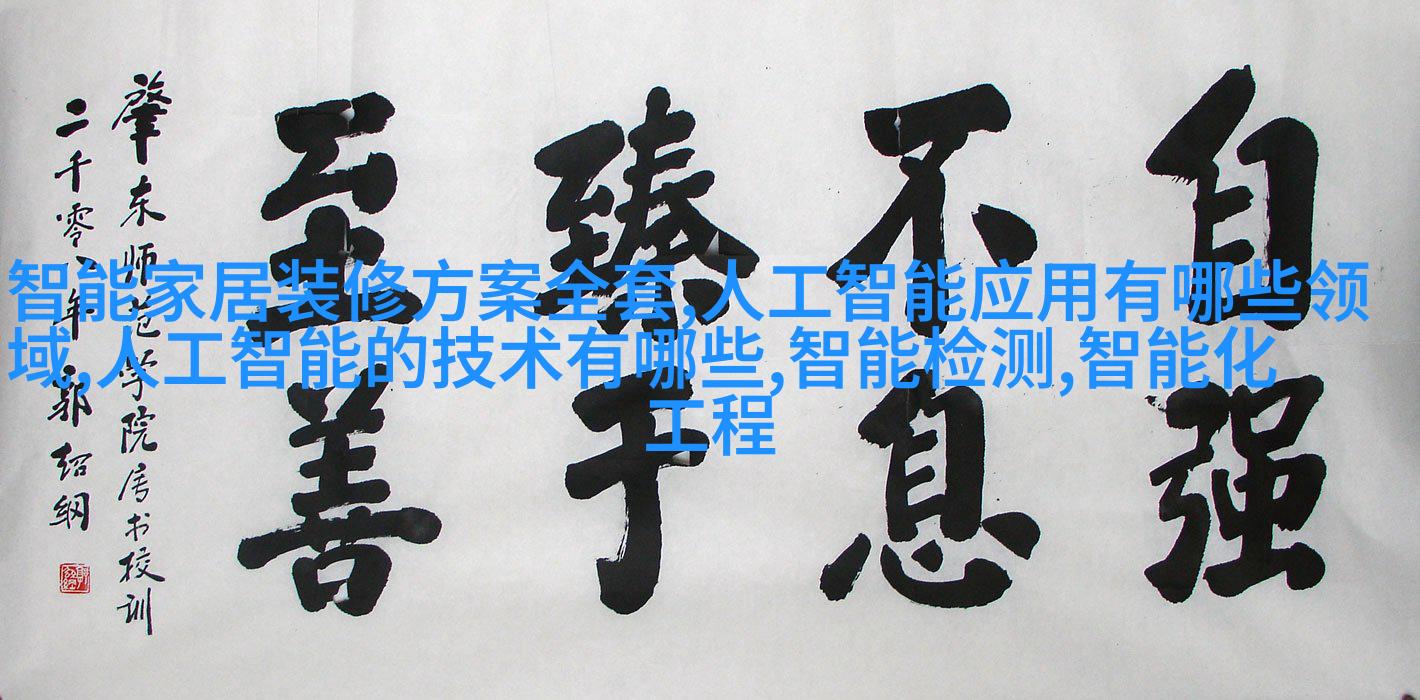 自强
不息
臻于
至善
肇东师范学院属书校训
二千零八年郭绍纲
智能家居装修方案全套,人工智能应用有哪些领
域,人工智能的技术有哪些,智能检测,智能化
工程